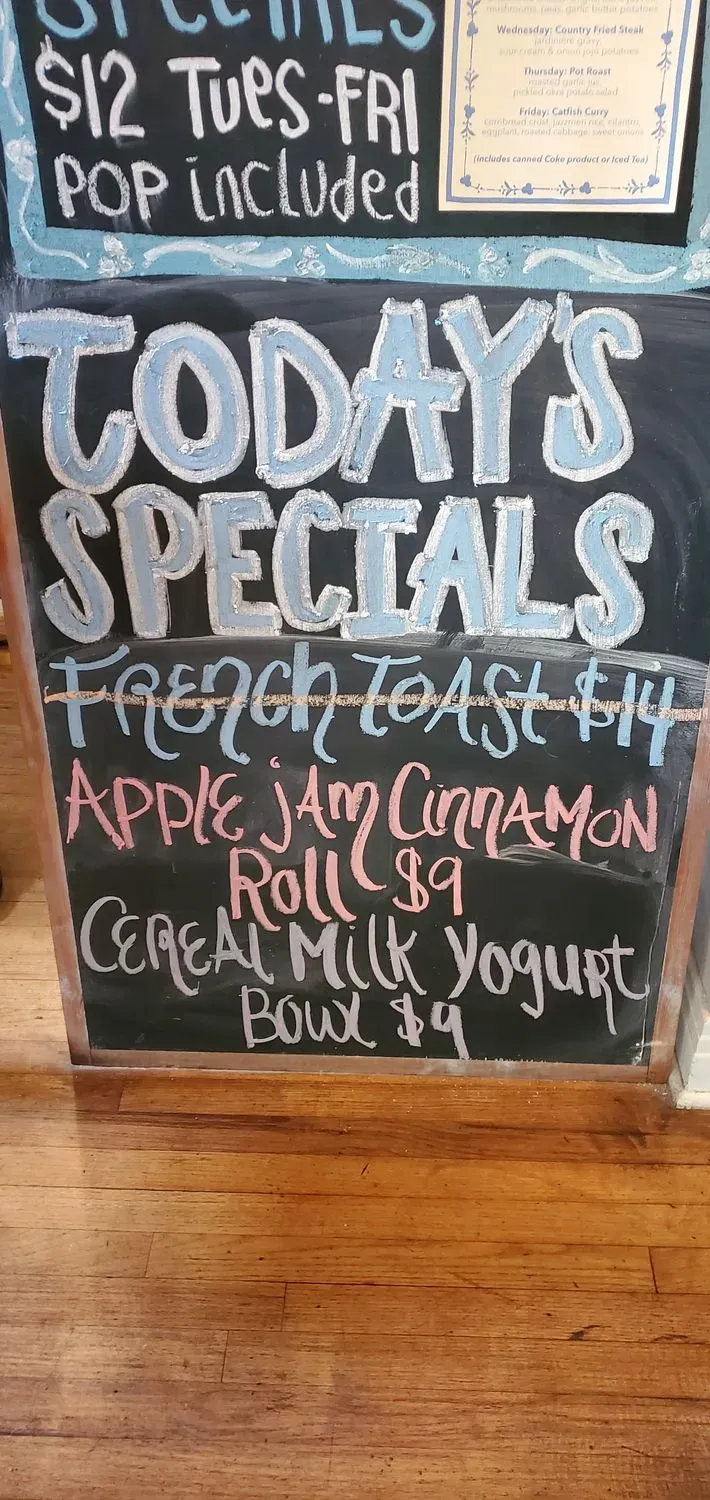 SPECIALS
$12 TUES-FRI
POP included
mushrooms, peas, garlic butter potatoes
Wednesday: Country Fried Steak
jardiniere gravy
sour cream & onion jojo potatoes
Thursday: Pot Roast
roasted garlic jus
pickled okra potato salad
Friday: Catfish Curry
cornbread crust, jazzmen rice, cilantro,
eggplant, roasted cabbage, sweet onions
(includes canned Coke product or Iced Tea)
TODAY'S
SPECIALS
FRENCH TOAST $14
APPLE JAM CINNAMON
Roll $9
CEREAL Milk Yogurt
Bowl $9